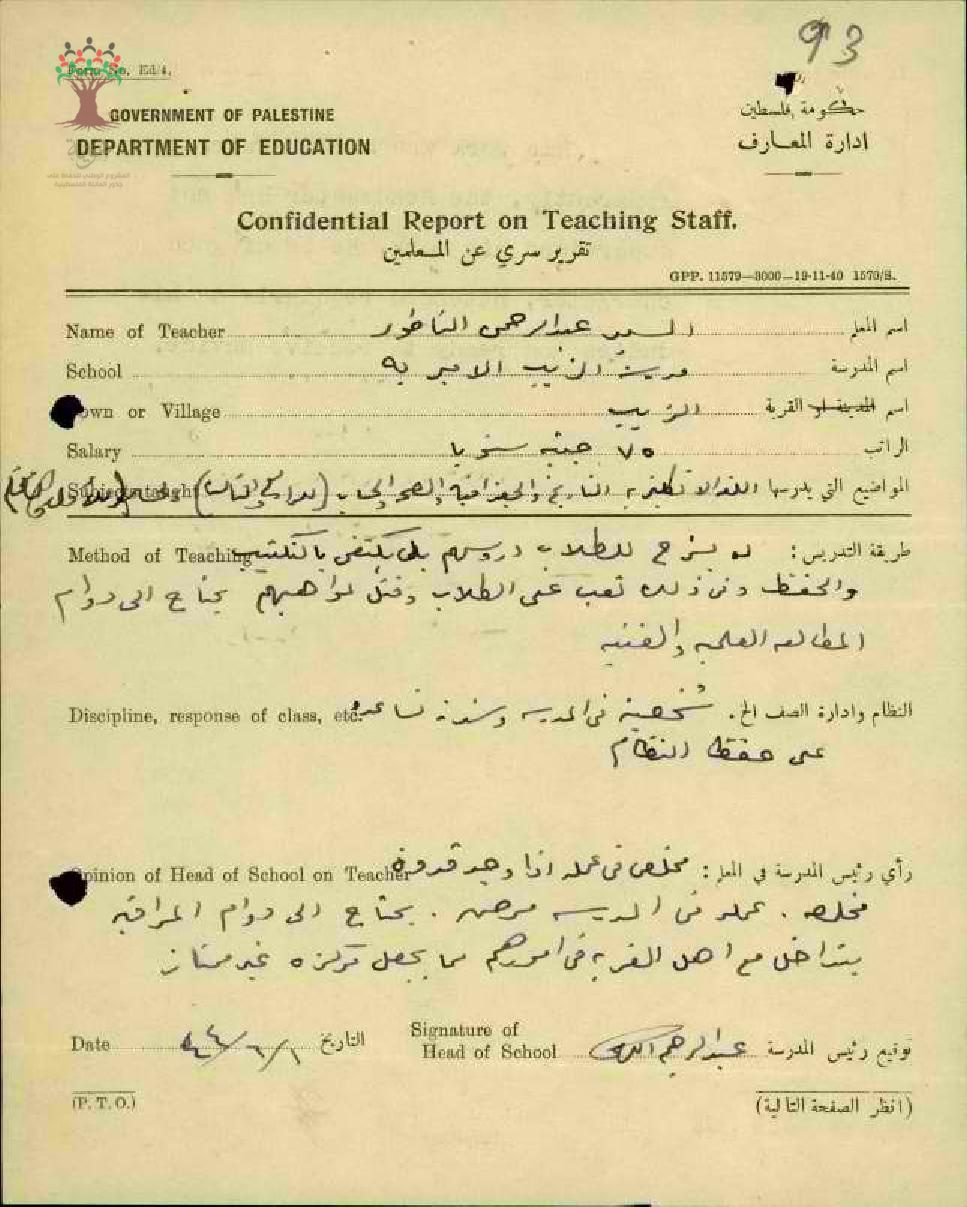 93
Form No. Ed/4.
GOVERNMENT OF PALESTINE
DEPARTMENT OF EDUCATION
حكومة فلسطين
ادارة المعارف
Confidential Report on Teaching Staff.
تقرير سري عن المعلمين
GPP. 11579—3000—19-11-40 1579/S.
Name of Teacher السيد عبدالرحمن الناطور اسم المعلم
School مدرسة الزيب الاميرية اسم المدرسة
Town or Village الزيب اسم المدينة او القرية
Salary ٧٥ جنيه سنويا الراتب
Subjects taught المواضيع التي يدرسها اللغة الانكليزية التاريخ والجغرافية والصحة والحساب
Method of Teaching طريقة التدريس: لا يشرح للطلاب دروسهم بل يكتفي بالتكتيب
والحفظ وفي ذلك تعب على الطلاب وقتل لمواهبهم يحتاج الى دوام
المطالعه العلميه والفنيه
Discipline, response of class, etc. النظام وادارة الصف الخ. شخصيته في المدرسه تساعده
على حفظ النظام
Opinion of Head of School on Teacher رأي رئيس المدرسة في المعلم: مخلص في عمله اذا وجد قدوة
مخلصه. عمله في المدرسه مرضي. يحتاج الى دوام المراقبه
يتداخل مع اهل القريه في امورهم مما يجعل مركزه غير ممتاز
Date ٤٤/٦/١ التاريخ Signature of
Head of School عبدالرحيم توقيع رئيس المدرسة
(P. T. O.) (انظر الصفحة التالية)